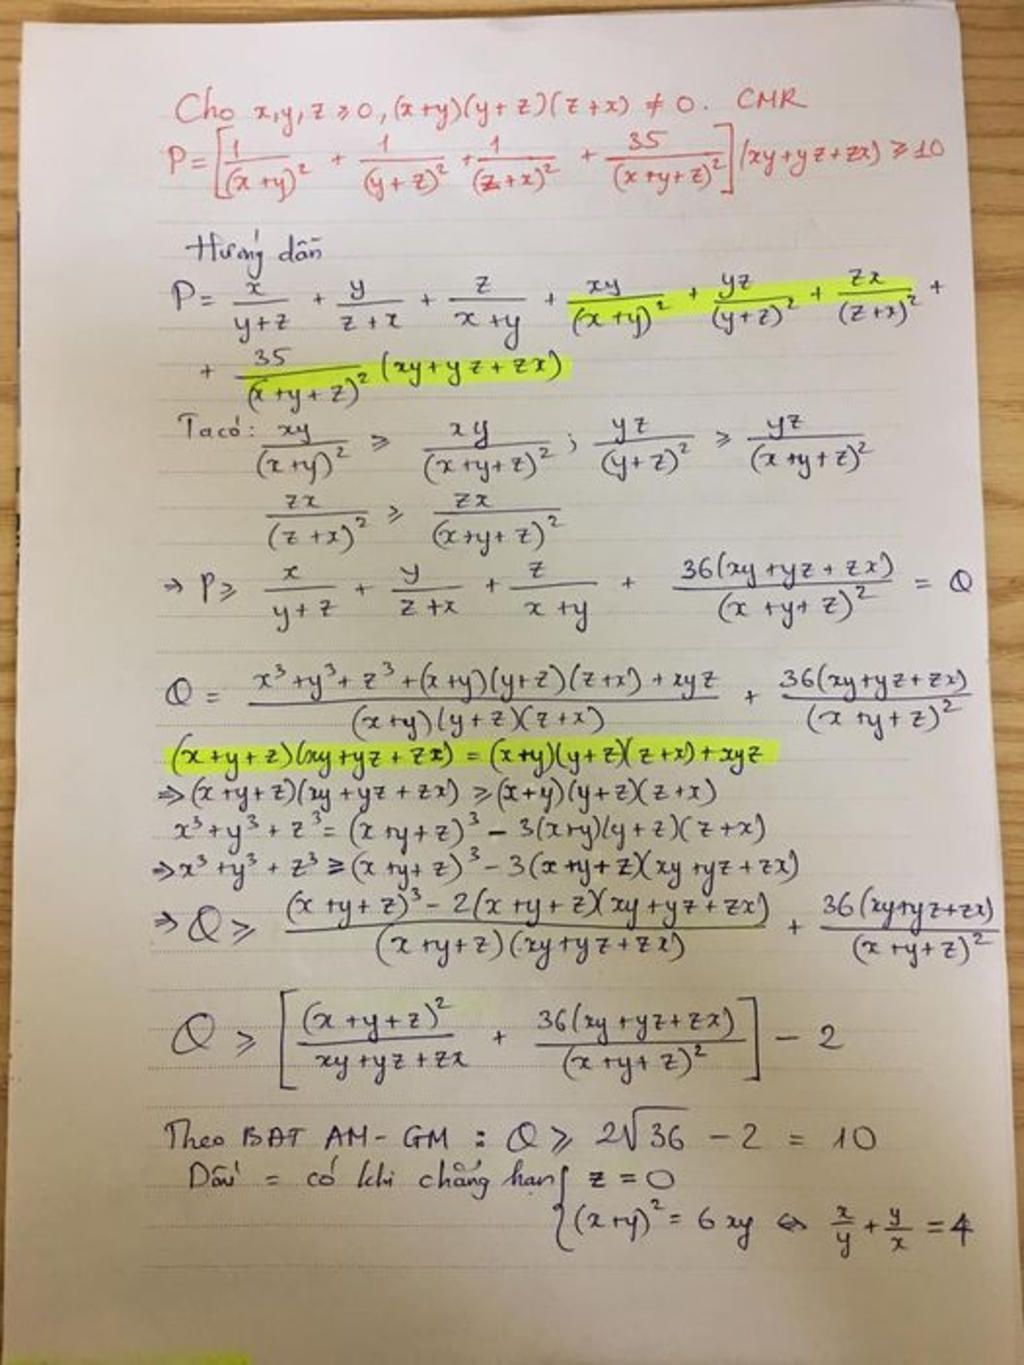 Cho x,y,z ≥ 0, (x+y)(y+z)(z+x) ≠ 0. CMR
P = [1/(x+y)² + 1/(y+z)² + 1/(z+x)² + 35/(x+y+z)²] (xy+yz+zx) ≥ 10
Hướng dẫn
P = x/(y+z) + y/(z+x) + z/(x+y) + xy/(x+y)² + yz/(y+z)² + zx/(z+x)² +
+ 35/(x+y+z)² (xy+yz+zx)
Ta có: xy/(x+y)² ≥ xy/(x+y+z)² ; yz/(y+z)² ≥ yz/(x+y+z)²
zx/(z+x)² ≥ zx/(x+y+z)²
⇒ P ≥ x/(y+z) + y/(z+x) + z/(x+y) + 36(xy+yz+zx)/(x+y+z)² = Q
Q = (x³+y³+z³+(x+y)(y+z)(z+x)+xyz)/((x+y)(y+z)(z+x)) + 36(xy+yz+zx)/(x+y+z)²
(x+y+z)(xy+yz+zx) = (x+y)(y+z)(z+x) + xyz
⇒ (x+y+z)(xy+yz+zx) ≥ (x+y)(y+z)(z+x)
x³+y³+z³ = (x+y+z)³ - 3(x+y)(y+z)(z+x)
⇒ x³+y³+z³ ≥ (x+y+z)³ - 3(x+y+z)(xy+yz+zx)
⇒ Q ≥ ((x+y+z)³ - 2(x+y+z)(xy+yz+zx))/((x+y+z)(xy+yz+zx)) + 36(xy+yz+zx)/(x+y+z)²
Q ≥ [(x+y+z)²/(xy+yz+zx) + 36(xy+yz+zx)/(x+y+z)²] - 2
Theo BĐT AM-GM : Q ≥ 2√36 - 2 = 10
Dấu = có khi chẳng hạn { z = 0
(x+y)² = 6xy ⇔ x/y + y/x = 4